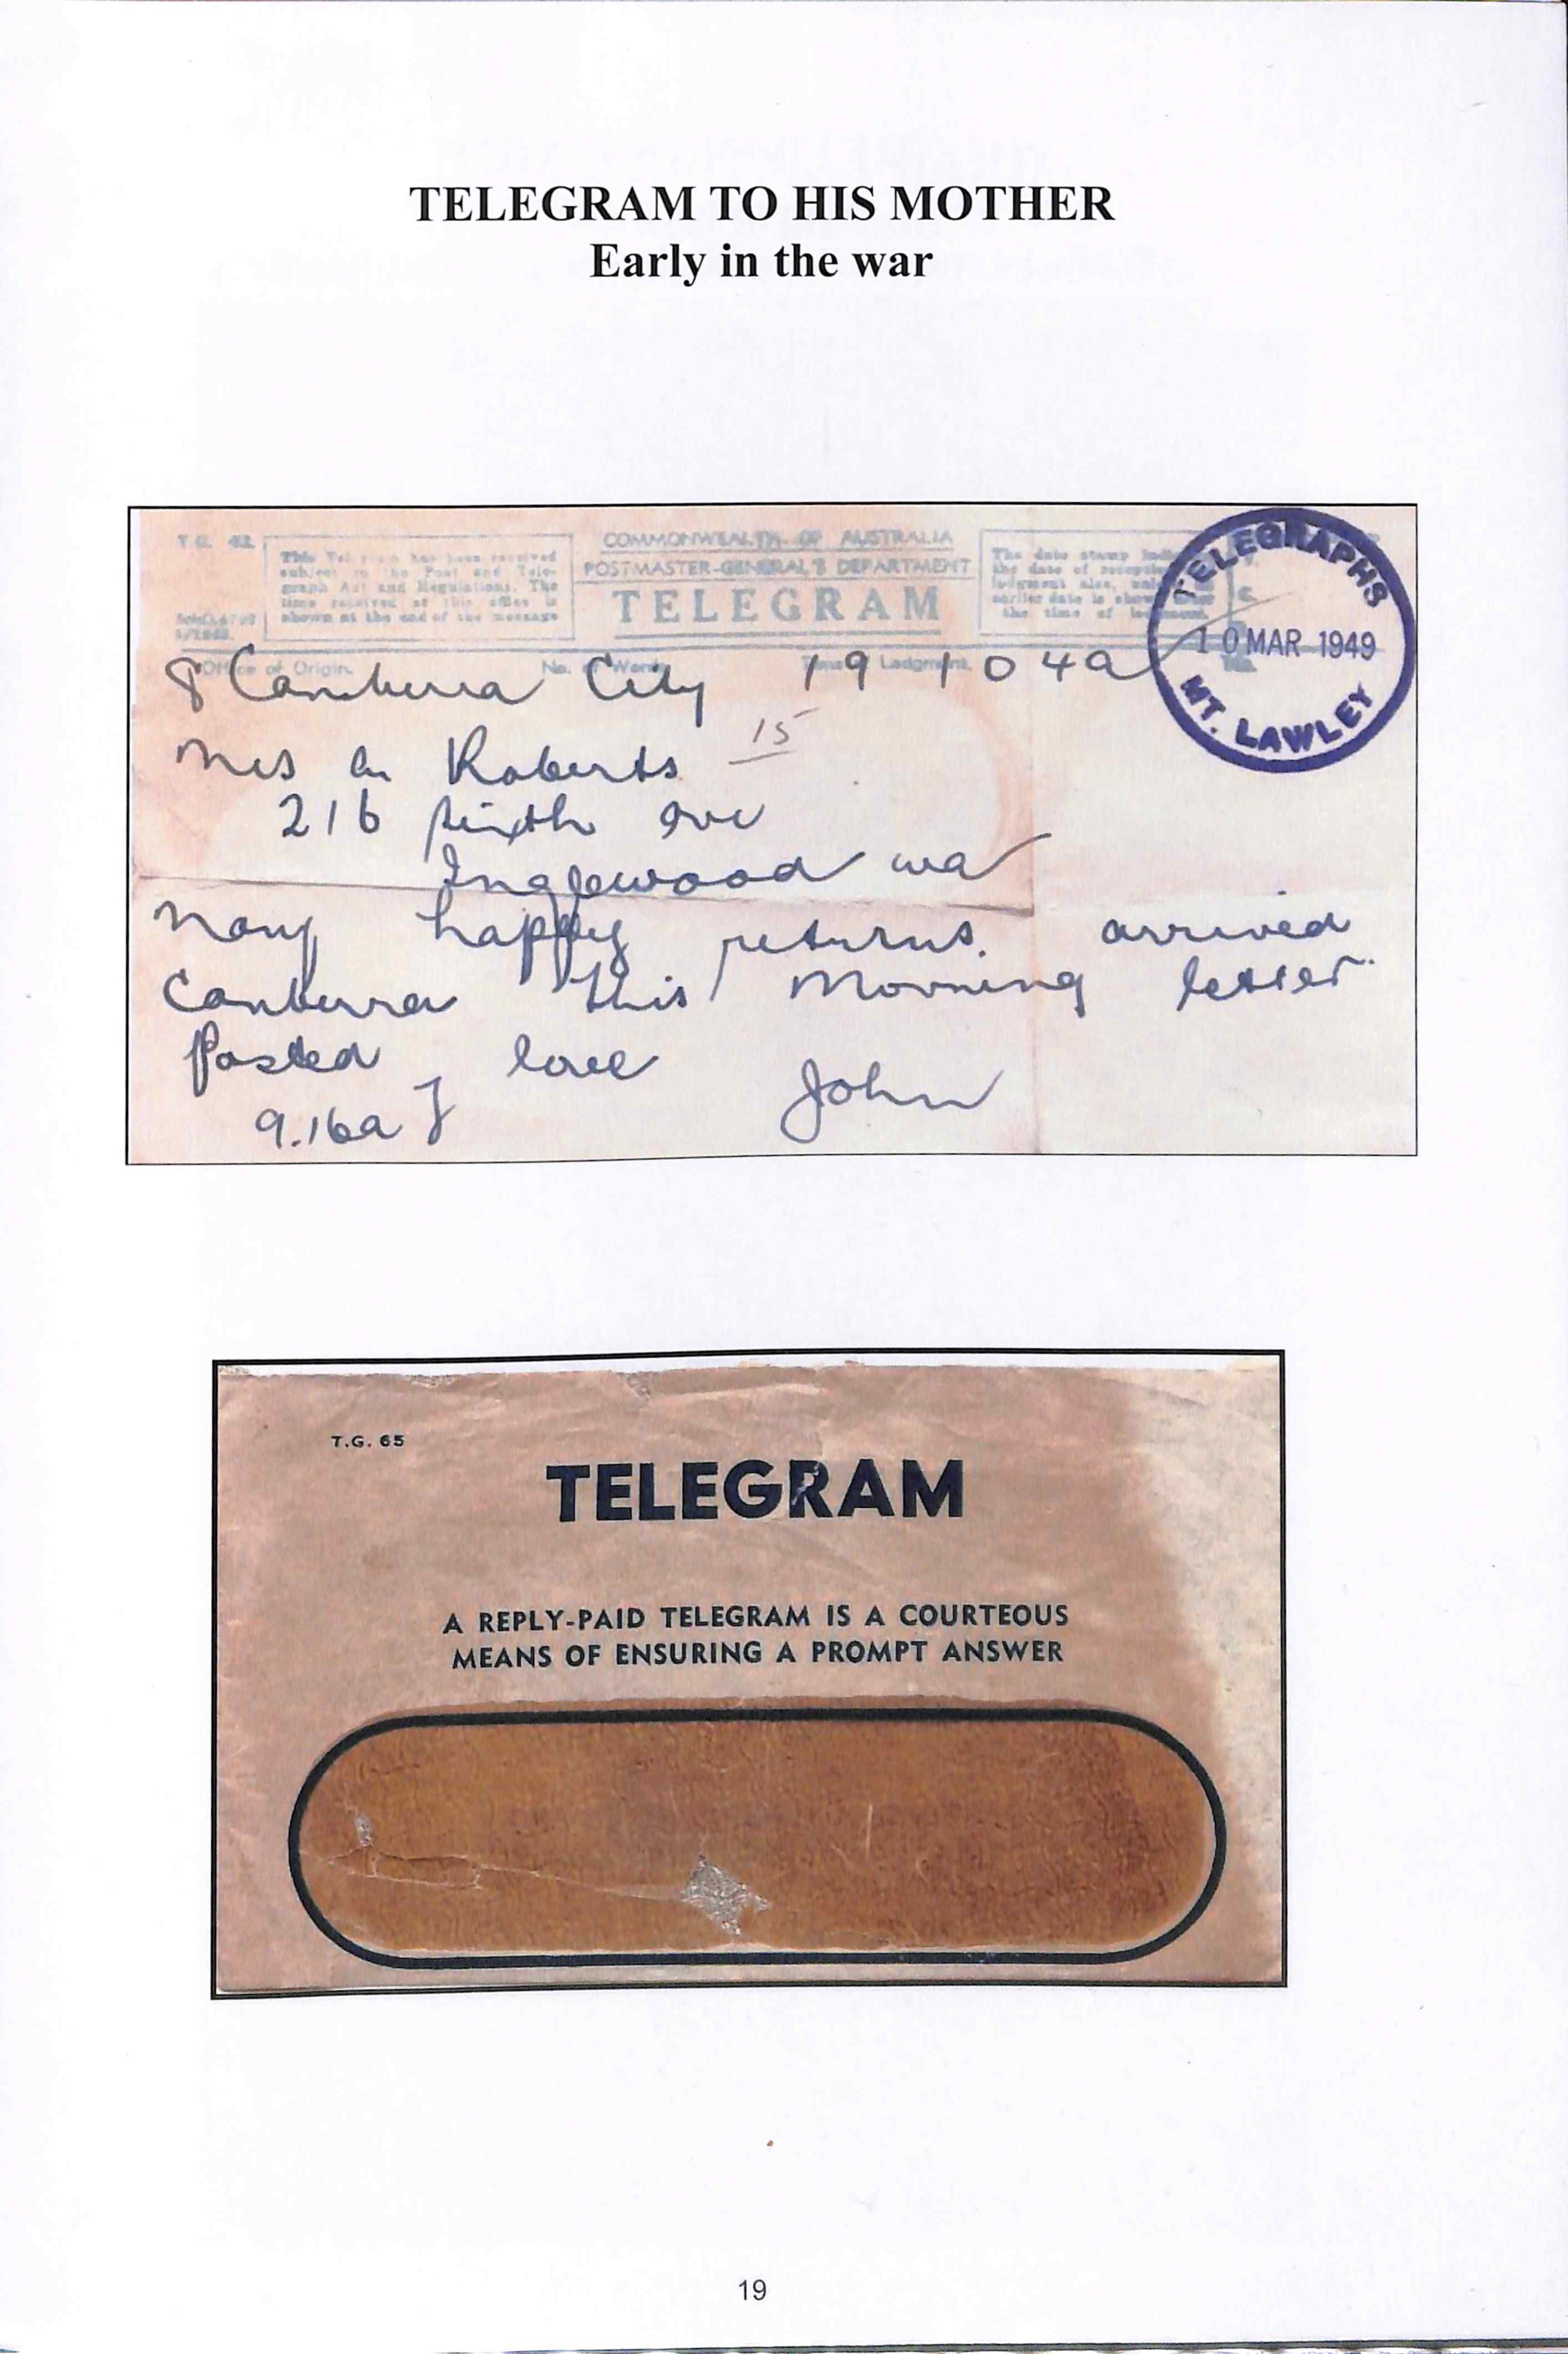 TELEGRAM TO HIS MOTHER
Early in the war
T.G. 42.
This Telegram has been received
subject to the Post and Tele-
graph Act and Regulations. The
time received at this office is
shown at the end of the message
COMMONWEALTH OF AUSTRALIA
POSTMASTER-GENERAL'S DEPARTMENT
TELEGRAM
The date stamp indi
the date of reception
lodgment also, unless
earlier date is shown after
the time of lodgment.
TELEGRAPHS
10 MAR 1949
MT. LAWLEY
Office of Origin. No. of Words. Time of Lodgment.
8 Canberra City 19 104a
15
Mrs Roberts
216 sixth ave
Inglewood wa
many happy returns. arrived
Canberra this morning letter
Posted love John
9.16a
T.G. 65
TELEGRAM
A REPLY-PAID TELEGRAM IS A COURTEOUS
MEANS OF ENSURING A PROMPT ANSWER
19